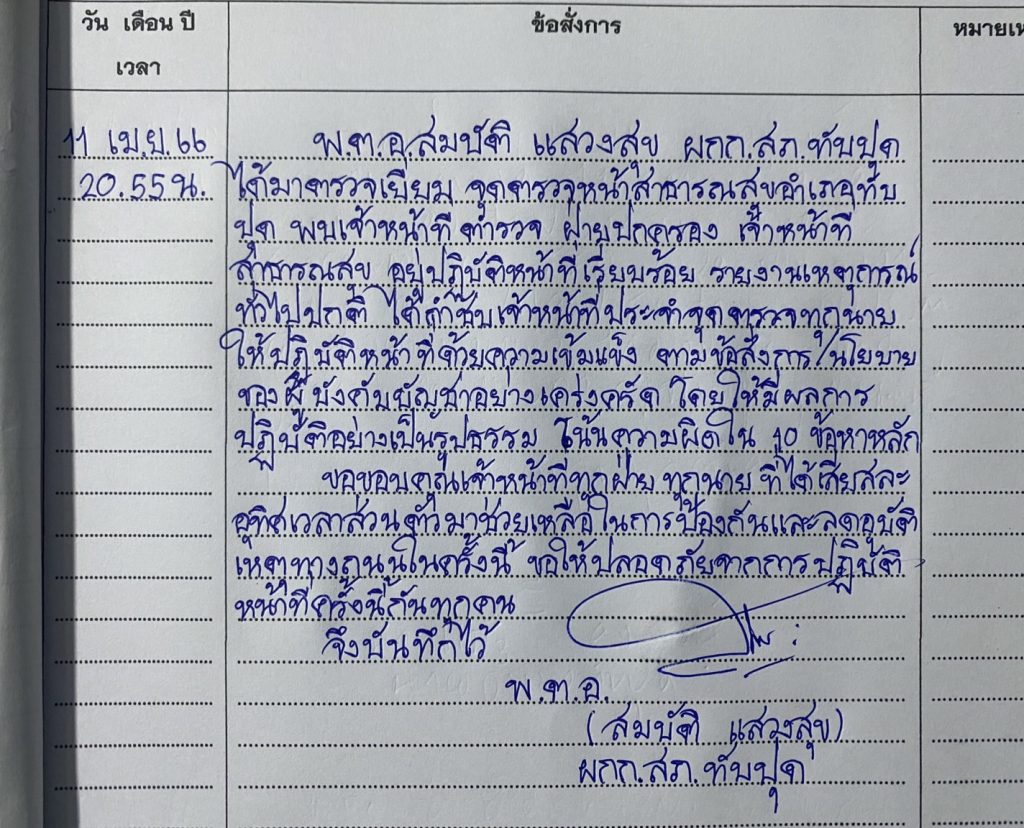 วัน เดือน ปี
เวลา
ข้อสั่งการ
หมายเห
11 เม.ย.66
20.55 น.
พ.ต.อ.สมบัติ แสวงสุข ผกก.สภ.ทับปุด
ได้มาตรวจเยี่ยม จุดตรวจหน้าสาธารณสุขอำเภอทับ
ปุด พบเจ้าหน้าที่ตำรวจ ฝ่ายปกครอง เจ้าหน้าที่
สาธารณสุข อยู่ปฏิบัติหน้าที่เรียบร้อย รายงานเหตุการณ์
ทั่วไปปกติ ได้กำชับเจ้าหน้าที่ประจำจุดตรวจทุกนาย
ให้ปฏิบัติหน้าที่ด้วยความเข้มแข็ง ตามข้อสั่งการ/นโยบาย
ของผู้บังคับบัญชาอย่างเคร่งครัด โดยให้มีผลการ
ปฏิบัติอย่างเป็นรูปธรรม เน้นความผิดใน 10 ข้อหาหลัก
ขอขอบคุณเจ้าหน้าที่ทุกฝ่าย ทุกนาย ที่ได้เสียสละ
อุทิศเวลาส่วนตัวมาช่วยเหลือในการป้องกันและลดอุบัติ
เหตุทางถนนในครั้งนี้ ขอให้ปลอดภัยจากการปฏิบัติ
หน้าที่ครั้งนี้กันทุกคน
จึงบันทึกไว้
พ.ต.อ.
(สมบัติ แสวงสุข)
ผกก.สภ.ทับปุด